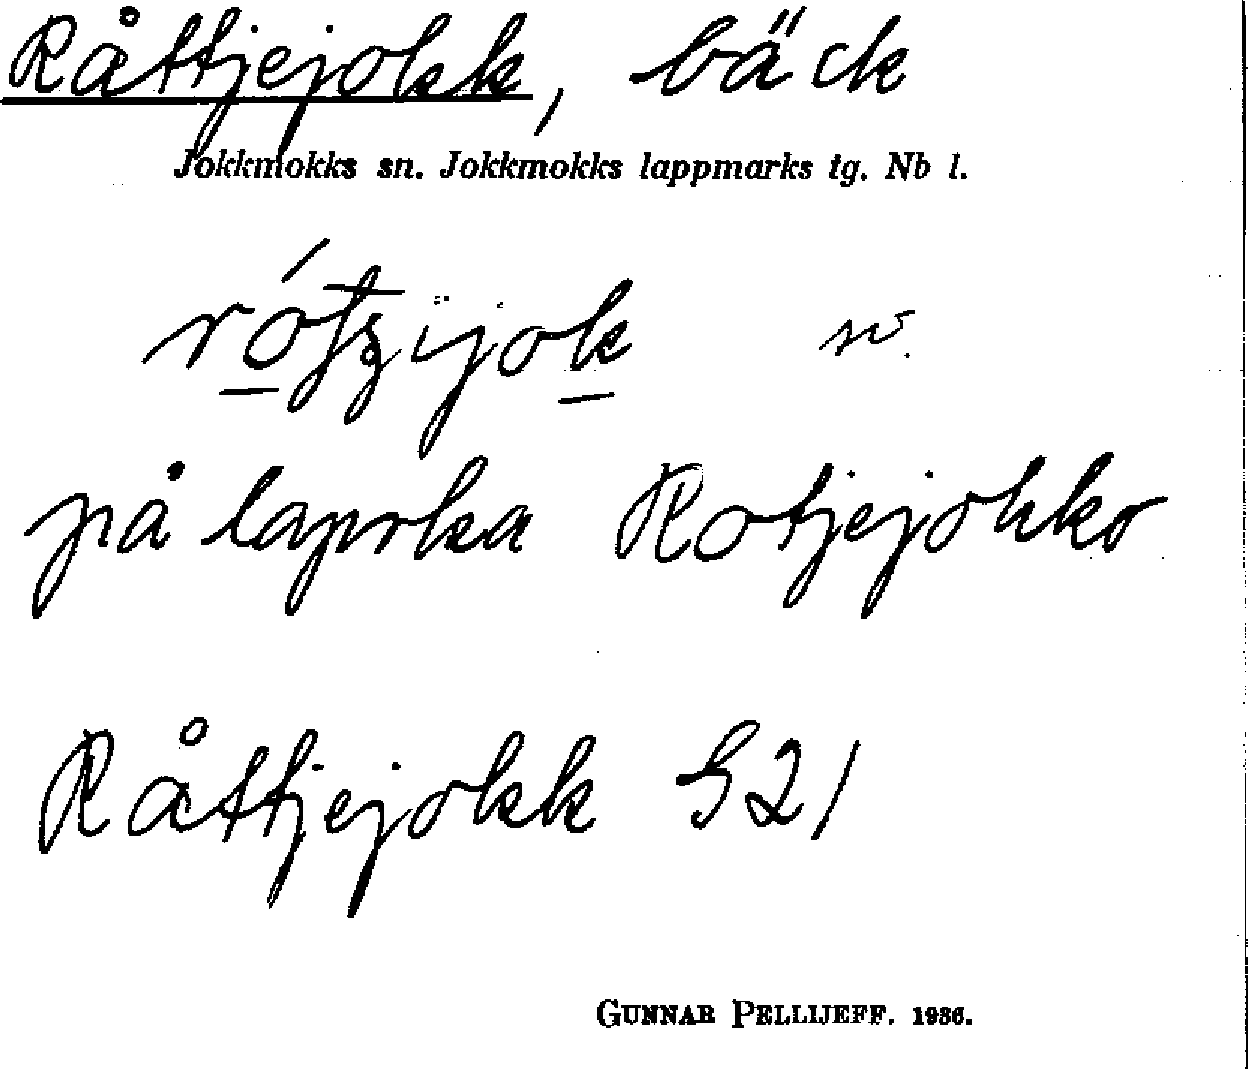 Råttjejokk, bäck
Jokkmokks sn. Jokkmokks lappmarks tg. Nb l.
sv.
på lapska Rotjejokko
Råttjejokk S21
GUNNAR PELLIJEFF. 1936.